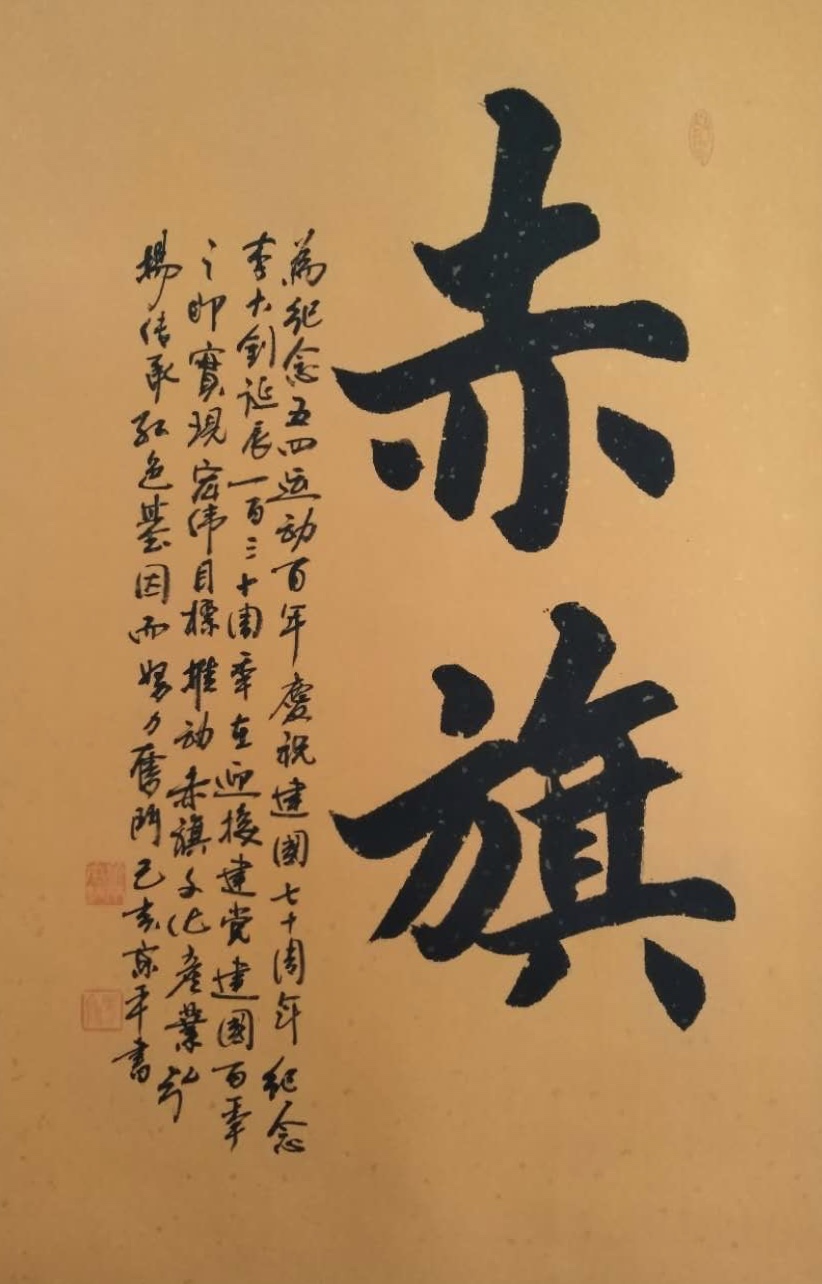 赤旗
為紀念五四运动百年慶祝建國七十周年紀念
李大釗诞辰一百三十周年在迎接建党建國百年
之即實現宏伟目標推动赤旗文化産業弘
揚传承红色基因而努力奮鬥己亥京平書